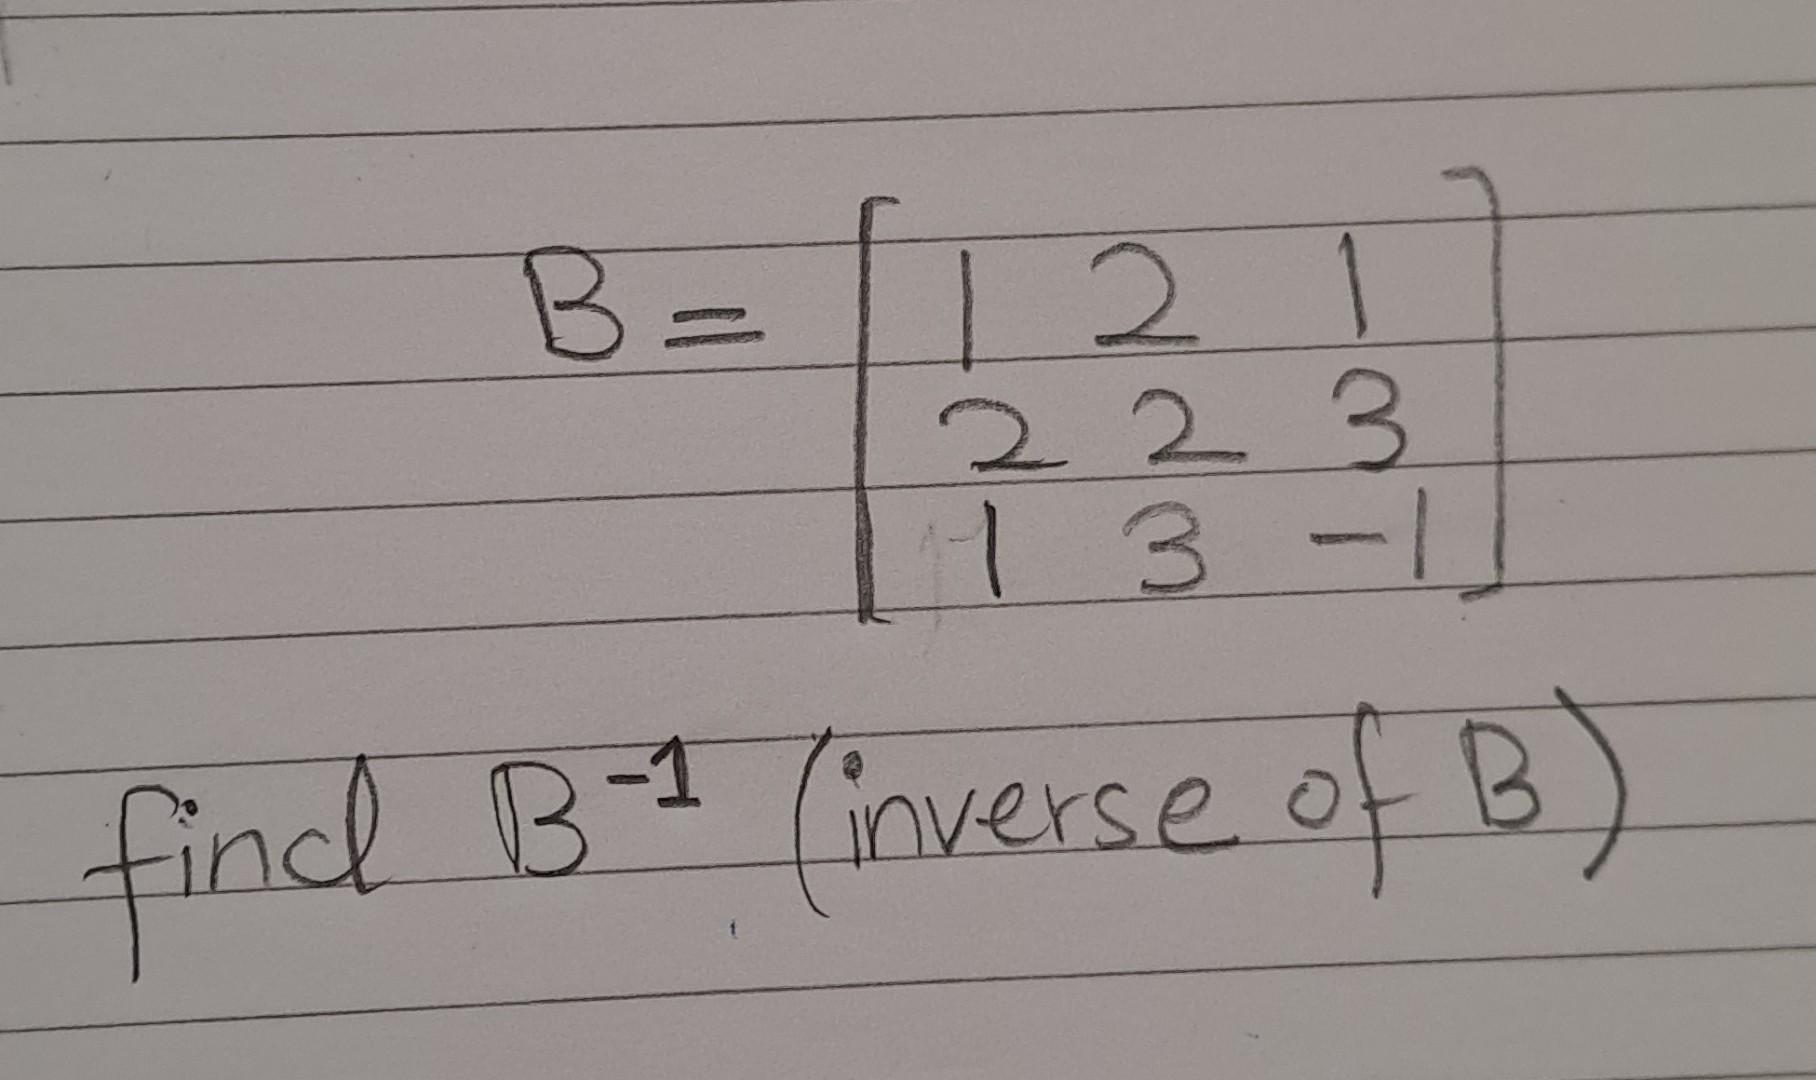 B = [ 1 2 1
2 2 3
1 3 -1 ]
find B⁻¹ (inverse of B)